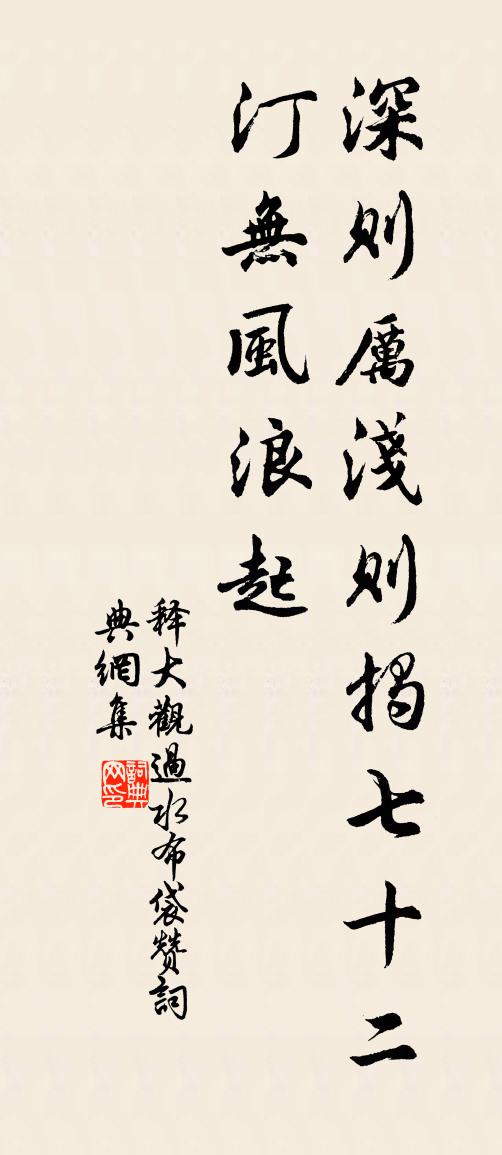 深則厲淺則揭七十二
汀無風浪起
释大觀過水布袋赞詞
典網集
詞典
网印